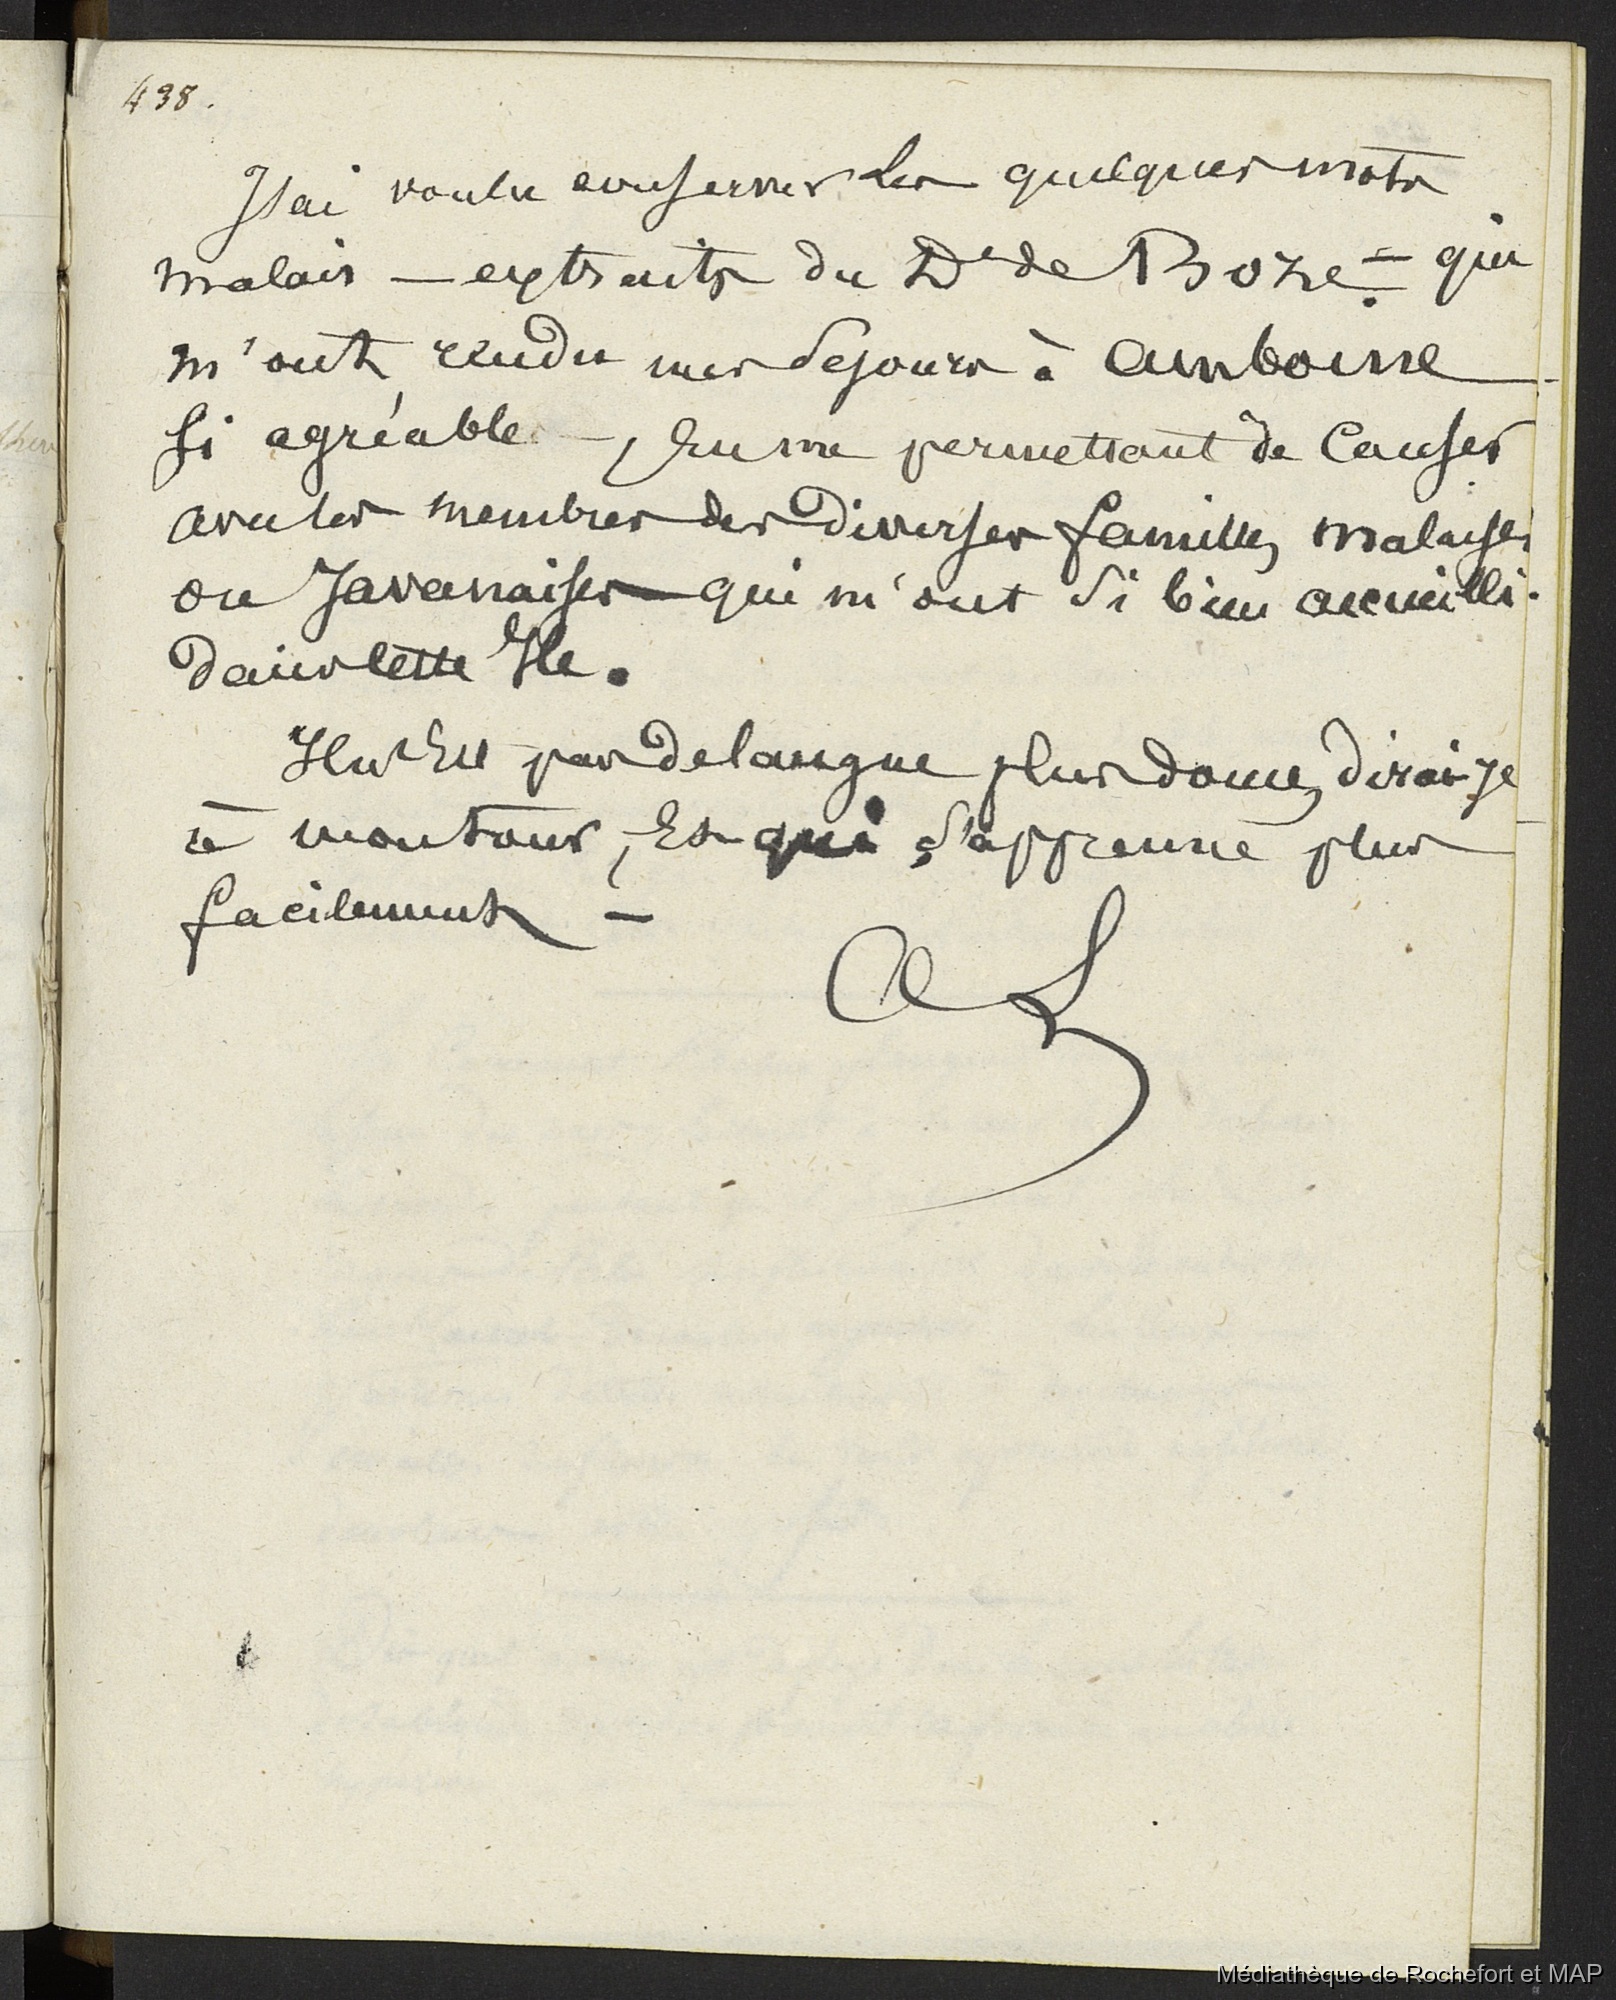 438.
J'ai voulu conserver les quelques mots
malais — extraits du Dr de Boze = qui
m'ont rendu mes séjours à Amboine
si agréable —, En me permettant de Causer
avec les membres des diverses familles malaises
ou Javanaises — qui m'ont si bien accueilli.
dans cette Ile.
Il n'est pas de langue plus douce, dirai-je
à mon tour, Et qui s'apprenne plus
facilement —
Médiathèque de Rochefort et MAP